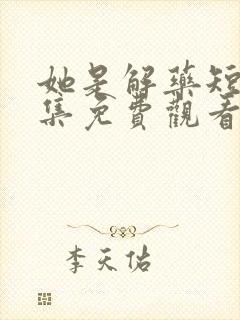 她是解藥短
集免費觀看
李天佑